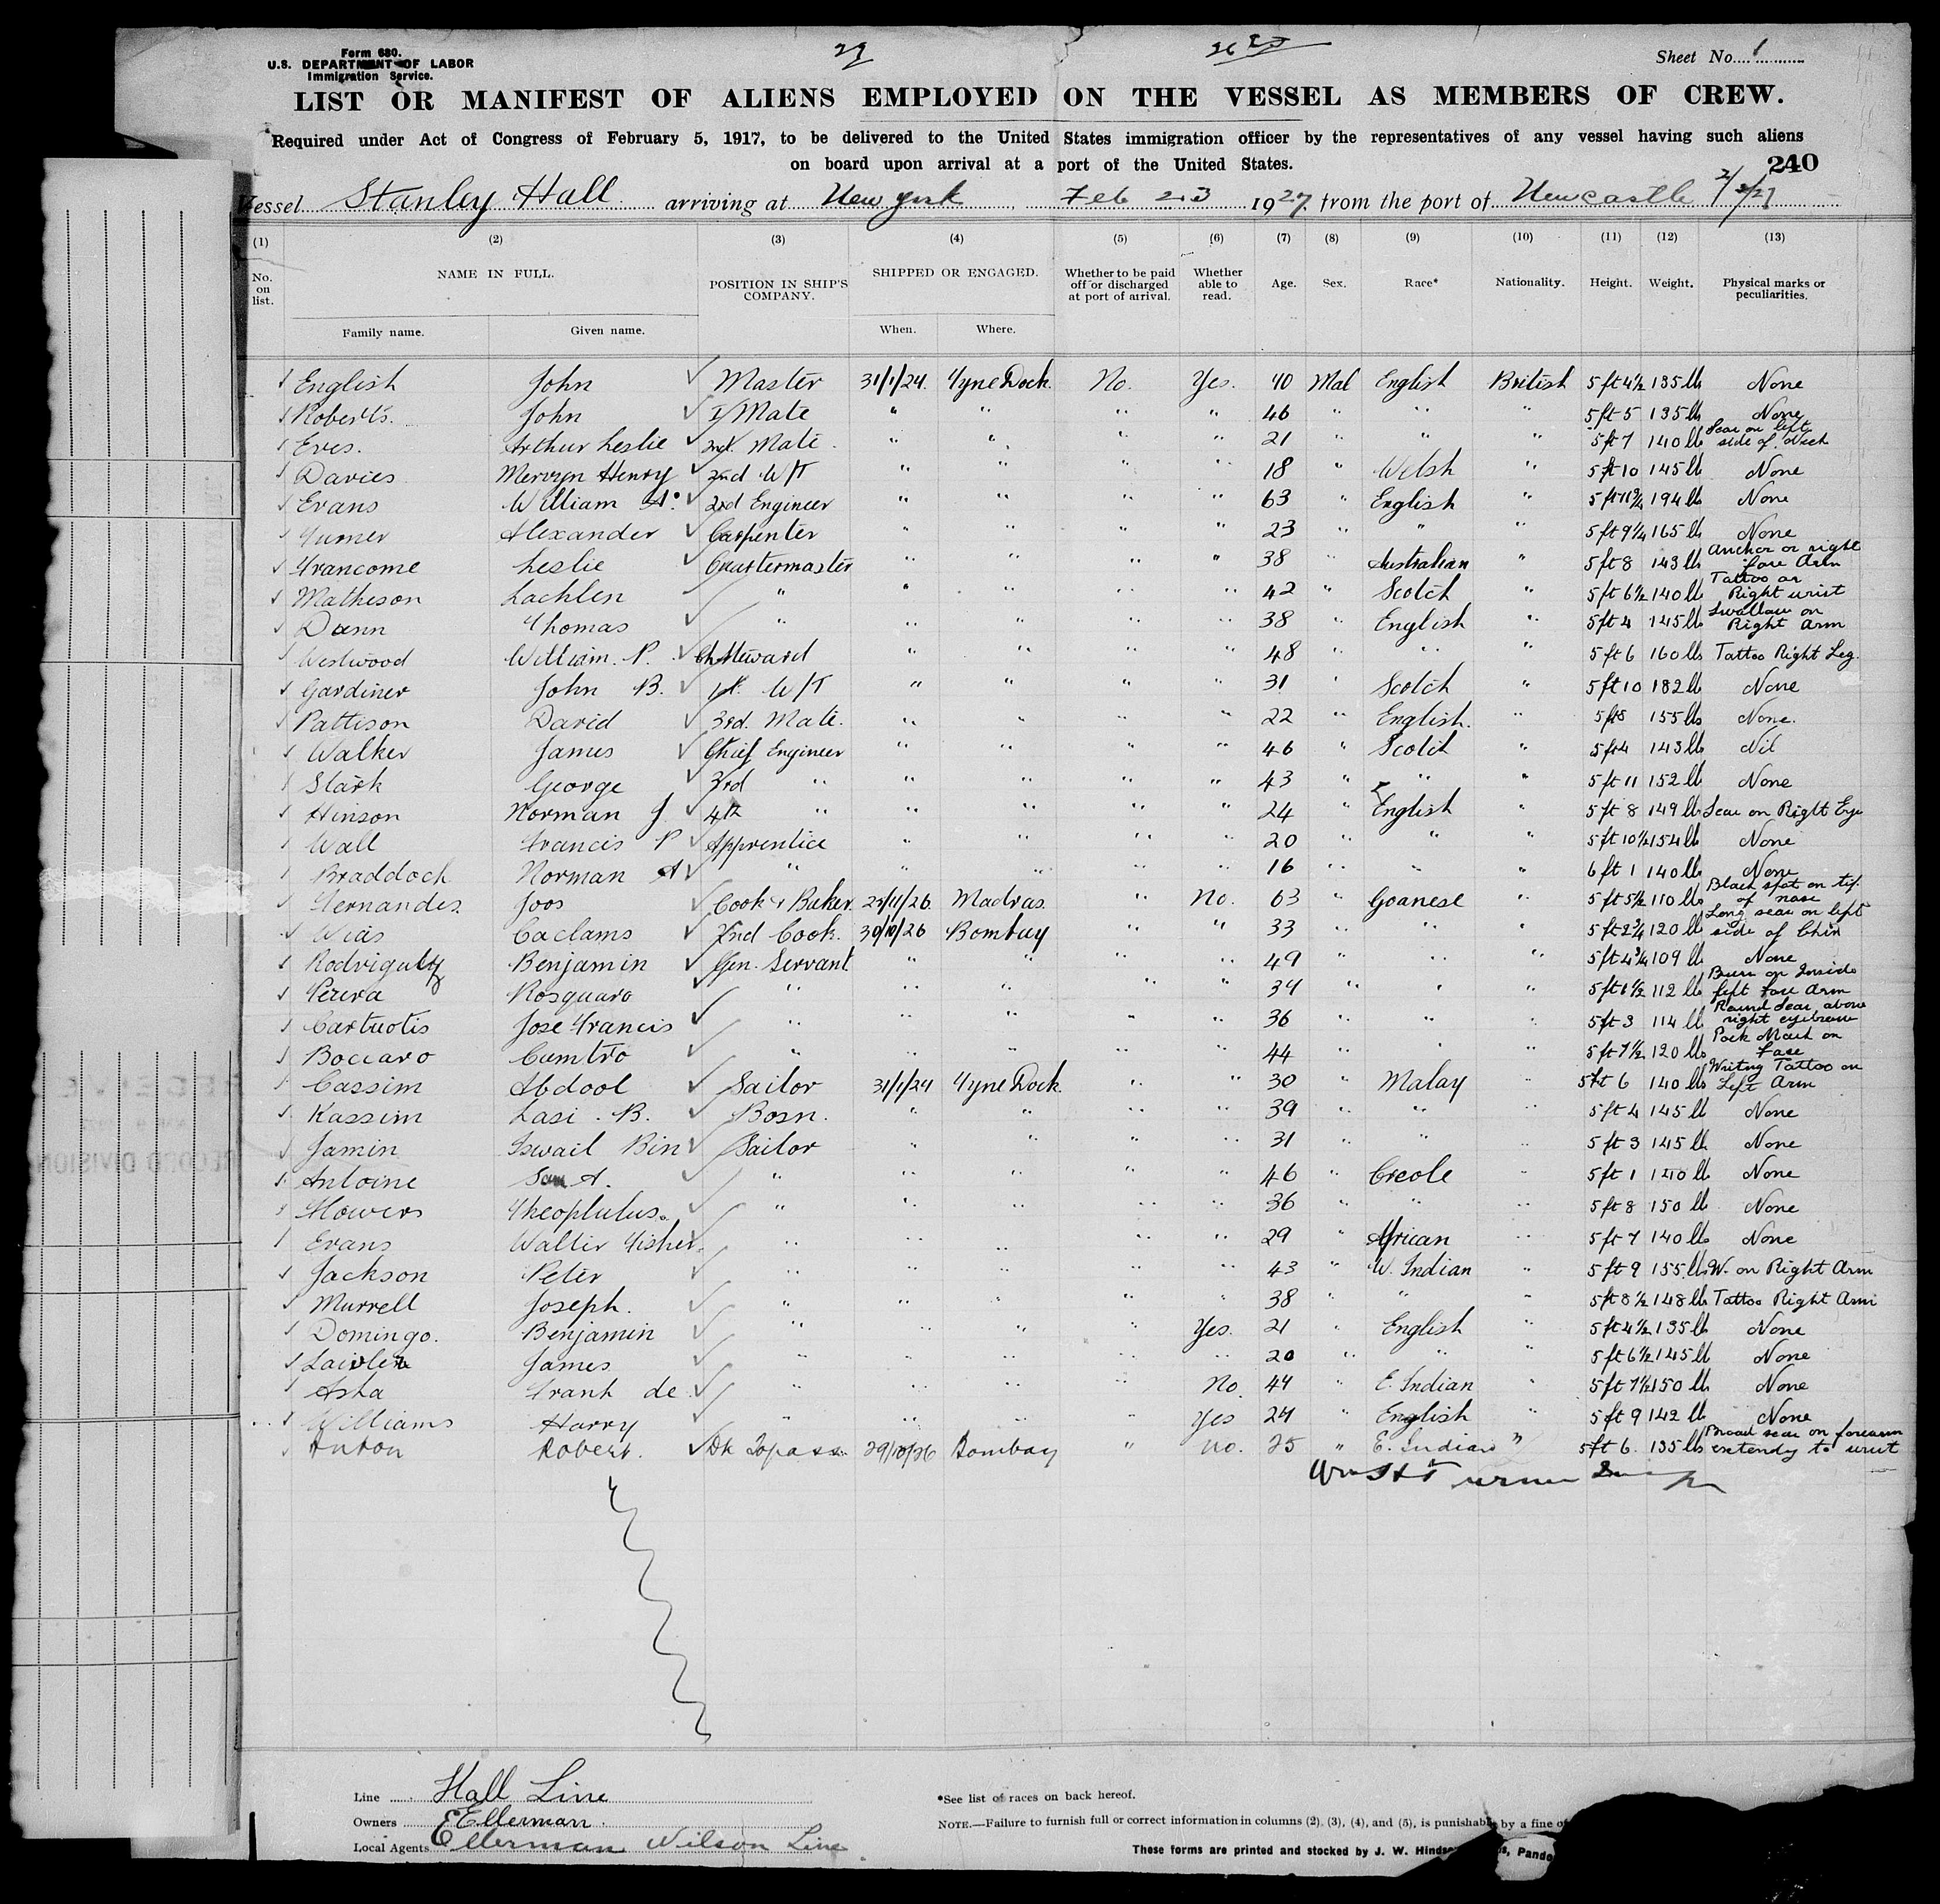 Form 680.
U.S. DEPARTMENT OF LABOR
Immigration Service.
Sheet No. 1
LIST OR MANIFEST OF ALIENS EMPLOYED ON THE VESSEL AS MEMBERS OF CREW.
Required under Act of Congress of February 5, 1917, to be delivered to the United States immigration officer by the representatives of any vessel having such aliens
on board upon arrival at a port of the United States.
240
Vessel Stanley Hall arriving at New York Feb 23 1927, from the port of Newcastle
(1) (2) (3) (4) (5) (6) (7) (8) (9) (10) (11) (12) (13)
No. on list. NAME IN FULL. POSITION IN SHIP'S COMPANY. SHIPPED OR ENGAGED. Whether to be paid off or discharged at port of arrival. Whether able to read. Age. Sex. Race* Nationality. Height. Weight. Physical marks or peculiarities.
Family name. Given name. When. Where.
English John Master 31/1/27. Tyne Dock. No. Yes. 40 Mal English British 5 ft 4½ 135 lb None
Roberts. John 1/Mate " " " " 46 " " " 5 ft 5 135 lb None
Eves. Arthur Leslie 2nd. Mate. " " " " 21 " " " 5 ft 7 140 lb Scar on left side of Neck
Davies Mervyn Henry 2nd W/T " " " " 18 " Welsh " 5 ft 10 145 lb None
Evans William A. 2nd Engineer " " " " 63 " English " 194 lb None
Turner Alexander Carpenter " " " " 23 " " " 5 ft 9¼ 165 lb None
Francome Leslie Quartermaster " " " " 38 " Australian " 5 ft 8 143 lb Anchor on right fore Arm
Matheson Lachlen " " " " " 42 " Scotch " 5 ft 6½ 140 lb Tattoo on Right wrist
Dunn Thomas " " " " " 38 " English " 5 ft 4 145 lb Swallow on Right Arm
Westwood William. P. Ch Steward " " " " 48 " " " 5 ft 6 160 lb Tattoo Right Leg.
Gardiner John B. 1st. W/T " " " " 31 " Scotch " 5 ft 10 182 lb None
Pattison David 3rd. Mate. " " " " 22 " English. " 5 ft 8 155 lbs None.
Walker James Chief Engineer " " " " 46 " Scotch " 5 ft 4 143 lb Nil
Stark George 3rd " " " " " 43 " " " 5 ft 11 152 lb None
Hinson Norman J. 4th " " " " " 24 " English " 5 ft 8 149 lb Scar on Right Eye
Wall Francis P Apprentice " " " " 20 " " " 5 ft 10½ 154 lb None
Braddock Norman A " " " " " 16 " " " 6 ft 1 140 lb None
Fernandes. Joos Cook & Baker. Madras. " No. 63 " Goanese " 5 ft 5½ 110 lb Black spot on tip of nose
Wias Caclams 2nd Cook. 30/10/26 Bombay " " 33 " " " 120 lb Long scar on left side of Chin
Benjamin Gen. Servant " " " " 49 " " " 5 ft 4¾ 109 lb None
Perera Rosquaro " " " " " 34 " " " 112 lb Burn on Inside left fore Arm
Jose Francis " " " " " 36 " " " 5 ft 3 114 lb Round Scar above right eyebrow
Boccaro " " " " " 44 " " " 5 ft 7½ 120 lb Pock Mark on Face
Cassim Abdool Sailor 31/1/27 Tyne Dock. " " 30 " Malay " 5 ft 6 140 lb Writing Tattoo on Left Arm
Kassim Lasi. B. Bosn. " " " " 39 " " " 5 ft 4 145 lb None
Jamin Iswail Bin Sailor " " " " 31 " " " 5 ft 3 145 lb None
Antoine Sam A. " " " " " 46 " Creole " 5 ft 1 140 lb None
Flowers " " " " " 36 " " " 5 ft 8 150 lb None
Evans Walter Fisher. " " " " " 29 " African " 5 ft 7 140 lb None
Jackson Peter " " " " " 43 " W. Indian " 5 ft 9 155 lb W. on Right Arm
Murrell Joseph. " " " " " 38 " " " 5 ft 8½ 148 lb Tattoo Right Arm
Domingo. Benjamin " " " " Yes. 21 " English " 5 ft 4½ 135 lb None
James " " " " " 20 " " " 5 ft 6½ 145 lb None
Asha Frank de " " " " No. 44 " E. Indian " 5 ft 7½ 150 lb None
Williams Harry " " " " Yes 24 " English " 5 ft 9 142 lb None
Anton Robert. Dk Topass 29/10/26 Bombay " no. 25 " E. Indian " 5 ft 6. 135 lbs Broad scar on forearm extendg to wrist
Line Hall Line
Owners Ellerman.
Local Agents Ellerman Wilson Line
*See list of races on back hereof.
NOTE.—Failure to furnish full or correct information in columns (2), (3), (4), and (5), is punishable by a fine of
These forms are printed and stocked by J. W. Hinds